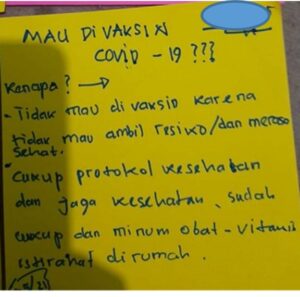 MAU DI VAKSIN
COVID - 19 ???
Kenapa ? →
- Tidak mau di vaksin karena
tidak mau ambil resiko/dan merasa
sehat.
• Cukup protokol kesehatan
dan jaga kesehatan, sudah
cukup dan minum obat - vitamin
istirahat dirumah.